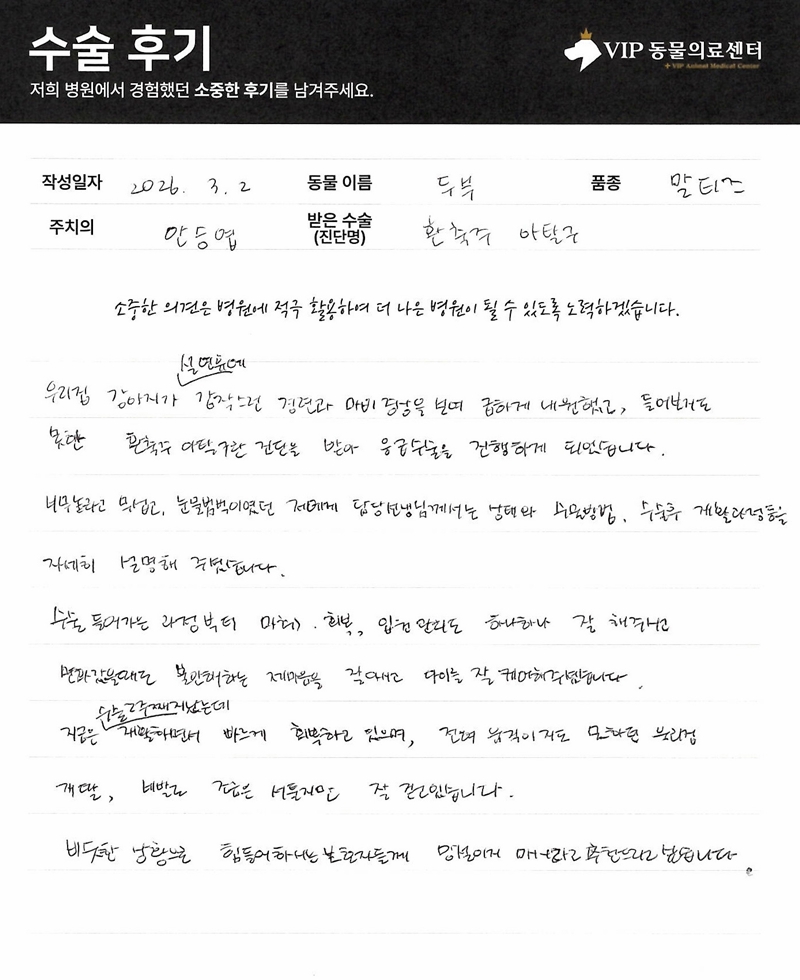 수술 후기
저희 병원에서 경험했던 소중한 후기를 남겨주세요.
VIP 동물의료센터
+ VIP Animal Medical Center
작성일자 2026. 3. 2 동물 이름 두부 품종 말티즈
주치의 안승엽 받은 수술 (진단명) 환축추 아탈구
소중한 의견은 병원에 적극 활용하여 더 나은 병원이 될 수 있도록 노력하겠습니다.
설연휴에
우리집 강아지가 갑작스런 경련과 마비증상을 보여 급하게 내원했고, 들어보지도
못한 환축추 아탈구란 진단을 받아 응급수술을 진행하게 되었습니다.
너무놀라고 무섭고, 눈물범벅이였던 저에게 담당선생님께서는 상태와 수술방법, 수술후 재활과정등을
자세히 설명해 주셨습니다.
수술 들어가는 과정부터 마취, 회복, 입원 관리도 하나하나 잘 해주시고
면회갔을때도 불안해하는 제마음을 잘아시고 아이를 잘 케어해주셨습니다.
수술2주째지났는데
지금은 재활하면서 빠르게 회복하고 있으며, 전혀 움직이지도 못하던 우리집
개딸, 네발로 조금은 서툴지만 잘 걷고있습니다.
비슷한 상황으로 힘들어하시는 보호자들께 망설이지 마시라고 추천드리고 싶습니다.